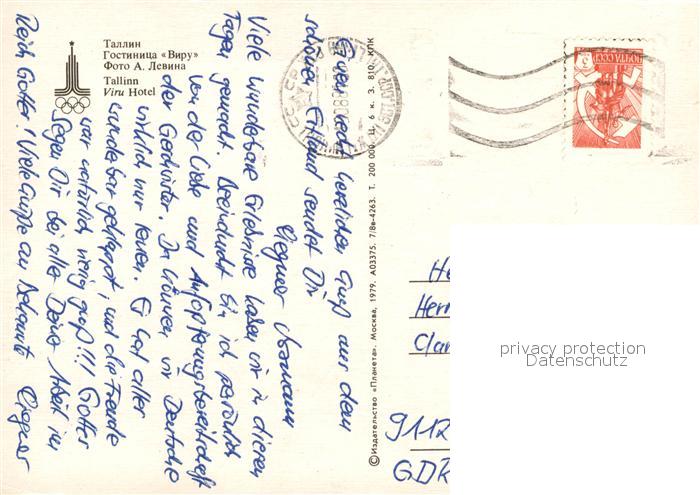 Таллин
Гостиница «Виру»
Фото А. Левина
Tallinn
Viru Hotel
Einen recht herzlichen Gruß aus dem
schönen Estland sendet Dir
Viele wunderbare Erlebnisse haben wir in diesen
Tagen gemacht. Beeindruckt bin ich persönlich
von der Liebe und Aufopferungsbereitschaft
der Geschwister. Da können wir Deutsche
wirklich nur lernen. Es hat alles
wunderbar geklappt, und die Freude
war natürlich riesig groß!!! Gottes
Segen Dir bei aller Deiner Arbeit im
Reich Gottes! Viele Grüße an Bekannte
©Издательство «Планета». Москва, 1979. А03375. 7/8в-4263. Т. 200 000. Ц. 6 к. З. 810. КПК
ПОЧТА СССР
He
Herr
Clar
9112
GDR
privacy protection
Datenschutz